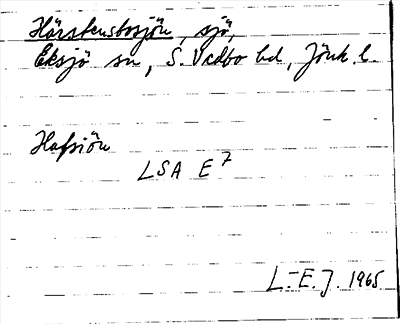 Hörstensbosjön, sjö,
Eksjö sn, S. Vedbo hd, Jönk. l.
Hafsiön
LSA E 7
L.-E. J. 1965